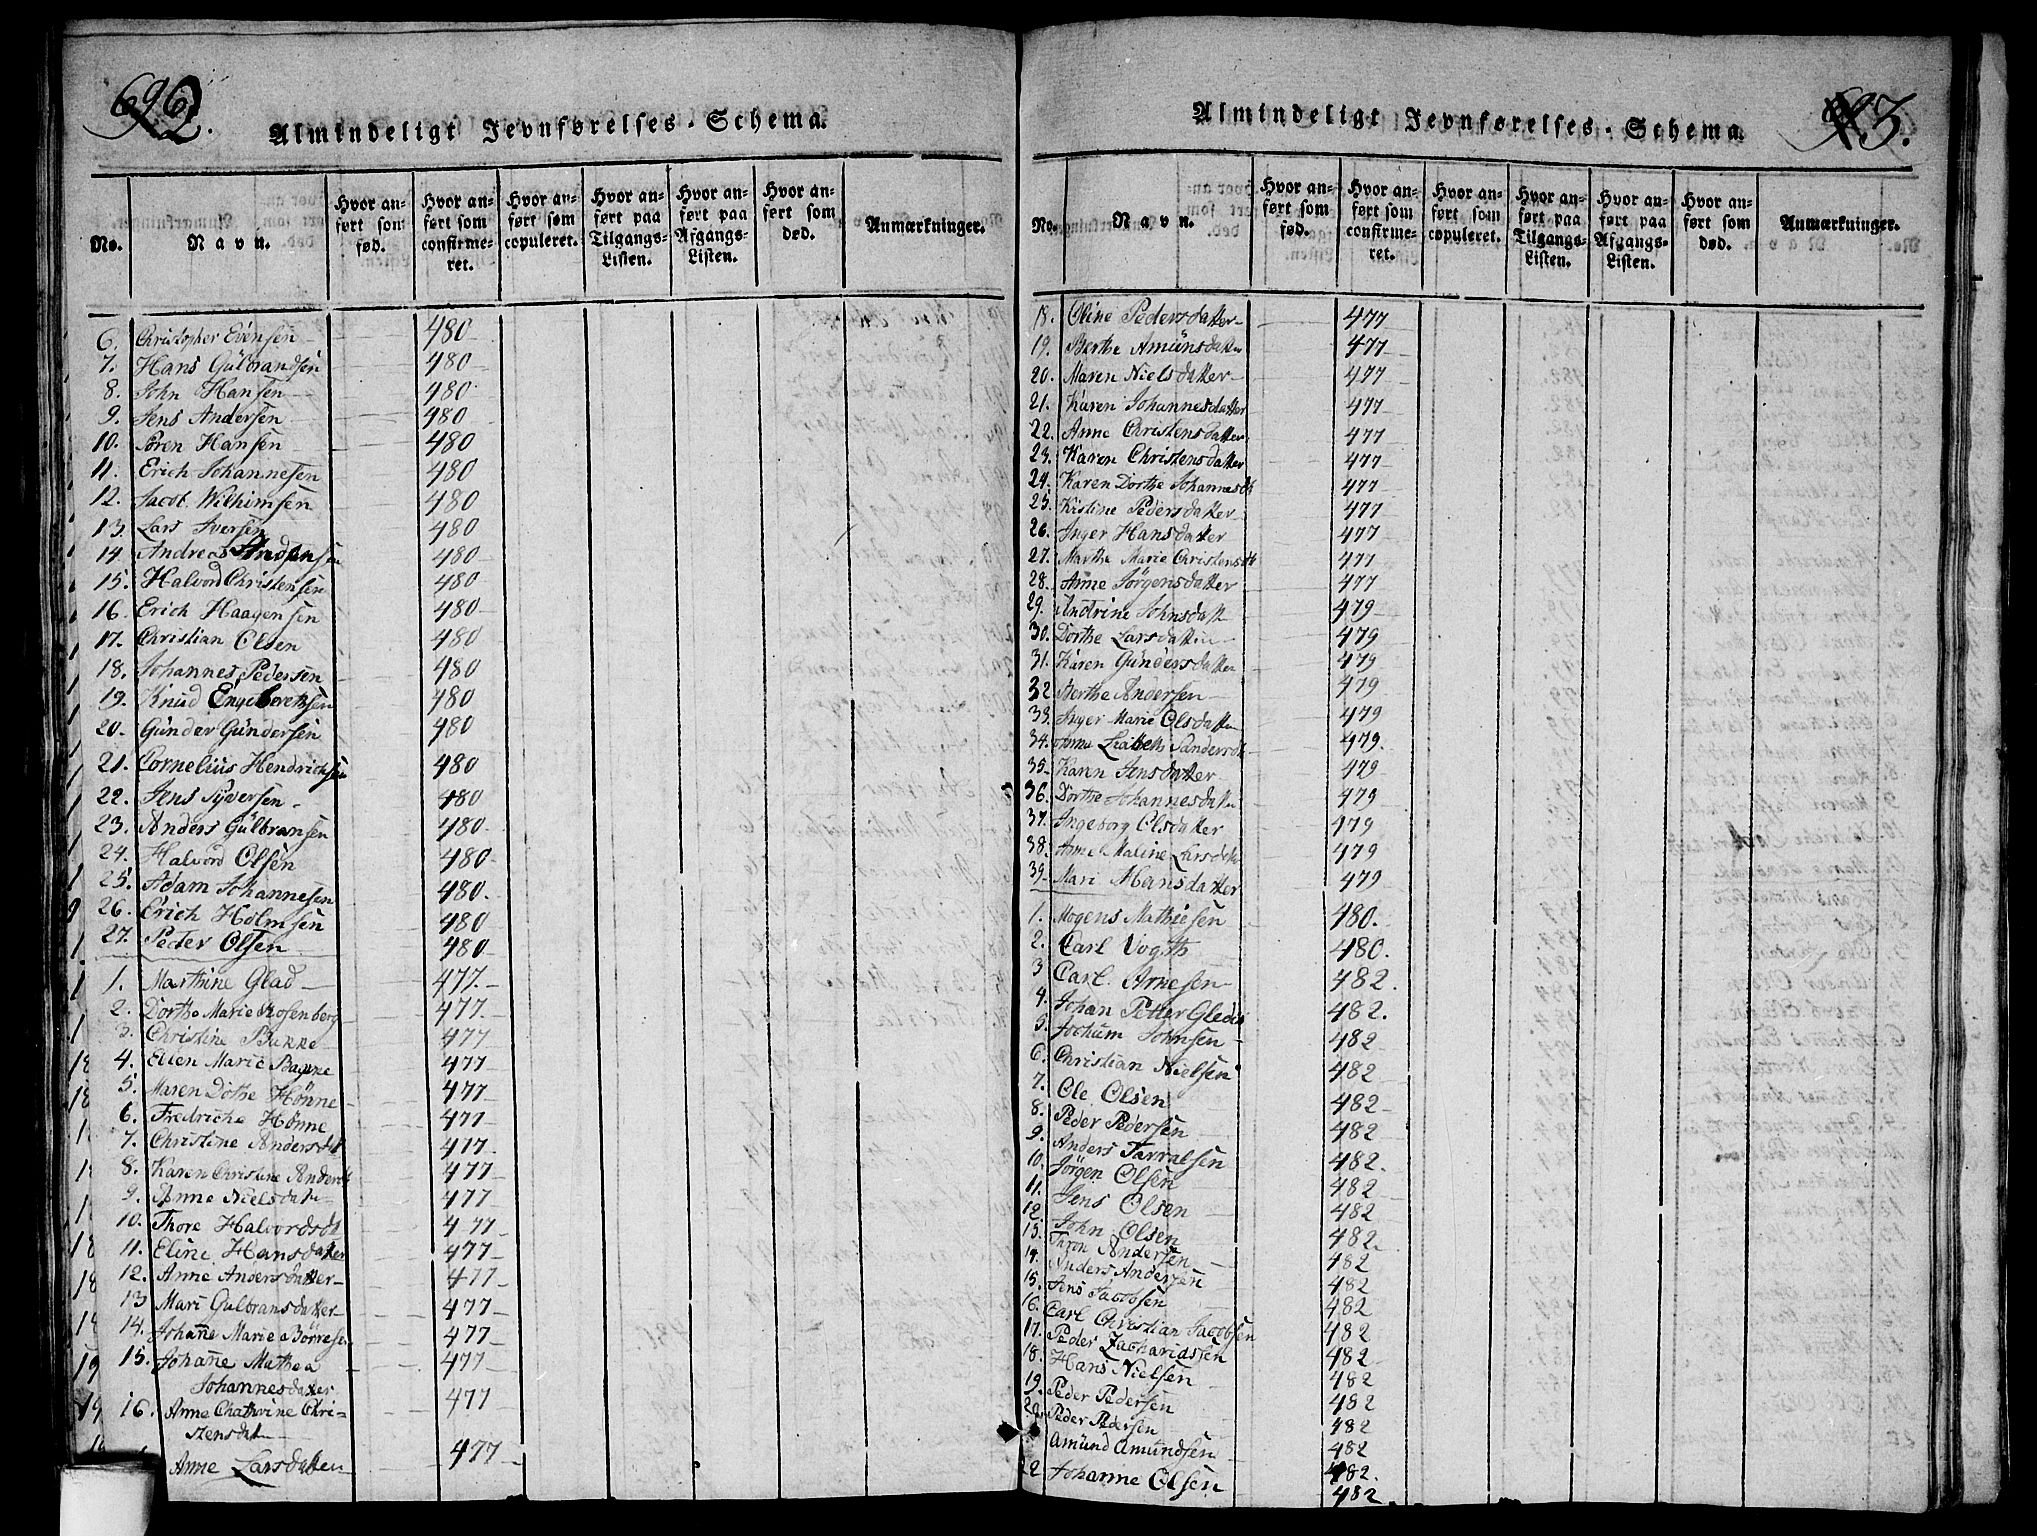 692.
Almindeligt Jevnførelses-Schema.
No.
Navn.
Hvor anført som fød.
Hvor anført som confirmeret.
Hvor anført som copuleret.
Hvor anført paa Tilgangs-Listen.
Hvor anført paa Afgangs-Listen.
Hvor anført som død.
Anmærkninger.
6. Christopher Evensen 480
7. Hans Gulbrandsen 480
8. John Hansen 480
9. Jens Andersen 480
10. Søren Hansen 480
11. Erich Johannesen 480
12. Jacob Wilhimsen 480
13. Lars Iversen 480
14. Andreas 480
15. Halvord Christensen 480
16. Erich Haagensen 480
17. Christian Olsen 480
18. Johannes Pedersen 480
19. Knud Engelbrethsen 480
20. Gunder Gundersen 480
21. Cornelius Hendrichsen 480
22. Jens Syversen 480
23. Anders Gulbransen 480
24. Halvord Olsen 480
25. Adam Johannesen 480.
26. Erich Holmsen 480
27. Peder Olsen 480
1. Marthine Glad 477.
2. Dorthe Marie Rosenberg 477.
3. Christine Bakke 477
4. Ellen Marie 477
5. Maren Dothe Hönne 477
6. Fredriche Hönne 477
7. Christine Andersdt 477.
8. Karen Christine Andersdt 477
9. Anne Nielsdatr 477
10. Thore Halvordsdt 477
11. Eline Hansdatter 477
12. Anne Andersdatter 477
13 Mari Gulbransdatter 477
14. Johanne Marie Börresen 477
15. Johanne Mathea 477
Johannesdatter
16. Anne Chathrine Chri- 477
stensdat
Anne Larsdatter 477
3.
Almindeligt Jevnførelses-Schema.
No.
Navn.
Hvor anført som fød.
Hvor anført som confirmeret.
Hvor anført som copuleret.
Hvor anført paa Tilgangs-Listen.
Hvor anført paa Afgangs-Listen.
Hvor anført som død.
Anmærkninger.
18. Oline Pedersdatter 477
19. Berthe Amunsdatter 477
20. Maren Nielsdatter 477
21. Karen Johannesdatter 477
22. Anne Christensdatter 477
23. Karen Christensdatter 477
24. Karen Dorthe Johannesdt 477
25. Kistine Pedersdatter 477
26. Inger Hansdatter 477
27. Marthe Marie Christensdt 477
28. Anne Jörgensdatter 477
29. Andrine Johnsdatt 479
30. Dorthe Larsdatter 479
31. Karen Gundersdatter 479
32 Berthe Andersen 479
33. Inger Marie Olsdatter 479
34. Anne Lisbeth 479.
35. Karen Jensdatter 479
36. Dorthe Johannesdatter 479
37. Ingeborg Olsdatter 479
38. Anne Maline Larsdatr 479
39. Mari Mansdatter 479
1. Mogens Mathiesen 480.
2. Carl Vogth 480.
3 Carl Arnesen 482.
4. Johan Petter 482.
5. Jochum Johnsen 482
6. Christian Nielsen 482
7. Ole Olsen 482
8. Peder Pedersen 482
9. Anders Tarralsen 482.
10. Jörgen Olsen 482
11. Jens Olsen 482
12. John Olsen 482.
13. Andersen 482
14. Anders Andersen 482
15. Jens Jacobsen 482
16. Carl Christian Jacobsen 482
17. Peder Zachariasen 482
18. Hans Nielsen 482
19. Peder Pedersen 482
20. Peder Pedersen 482
Amund Amundsen 482
22 Johanne Olsen 482.
482